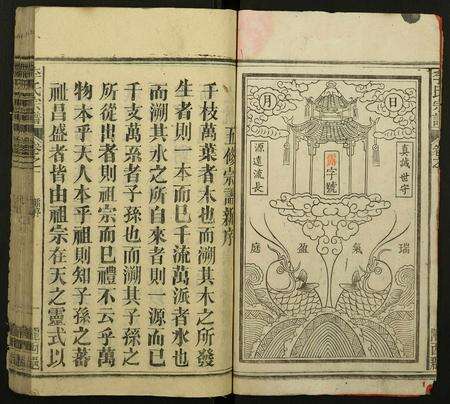 日月
真誠世守
字號
源遠流長
瑞氣盈庭
五修宗譜新序
千枝萬葉者木也而溯其木之所發
生者則一本而已千流萬派者水也
而溯其水之所自來者則一源而已
千支萬系者子孫也而溯其子孫之
所從出者則祖宗而已禮不云乎萬
物本乎天人本乎祖則知子孫之蕃
祖昌盛者皆由祖宗在天之靈式以
李氏宗譜
卷之一